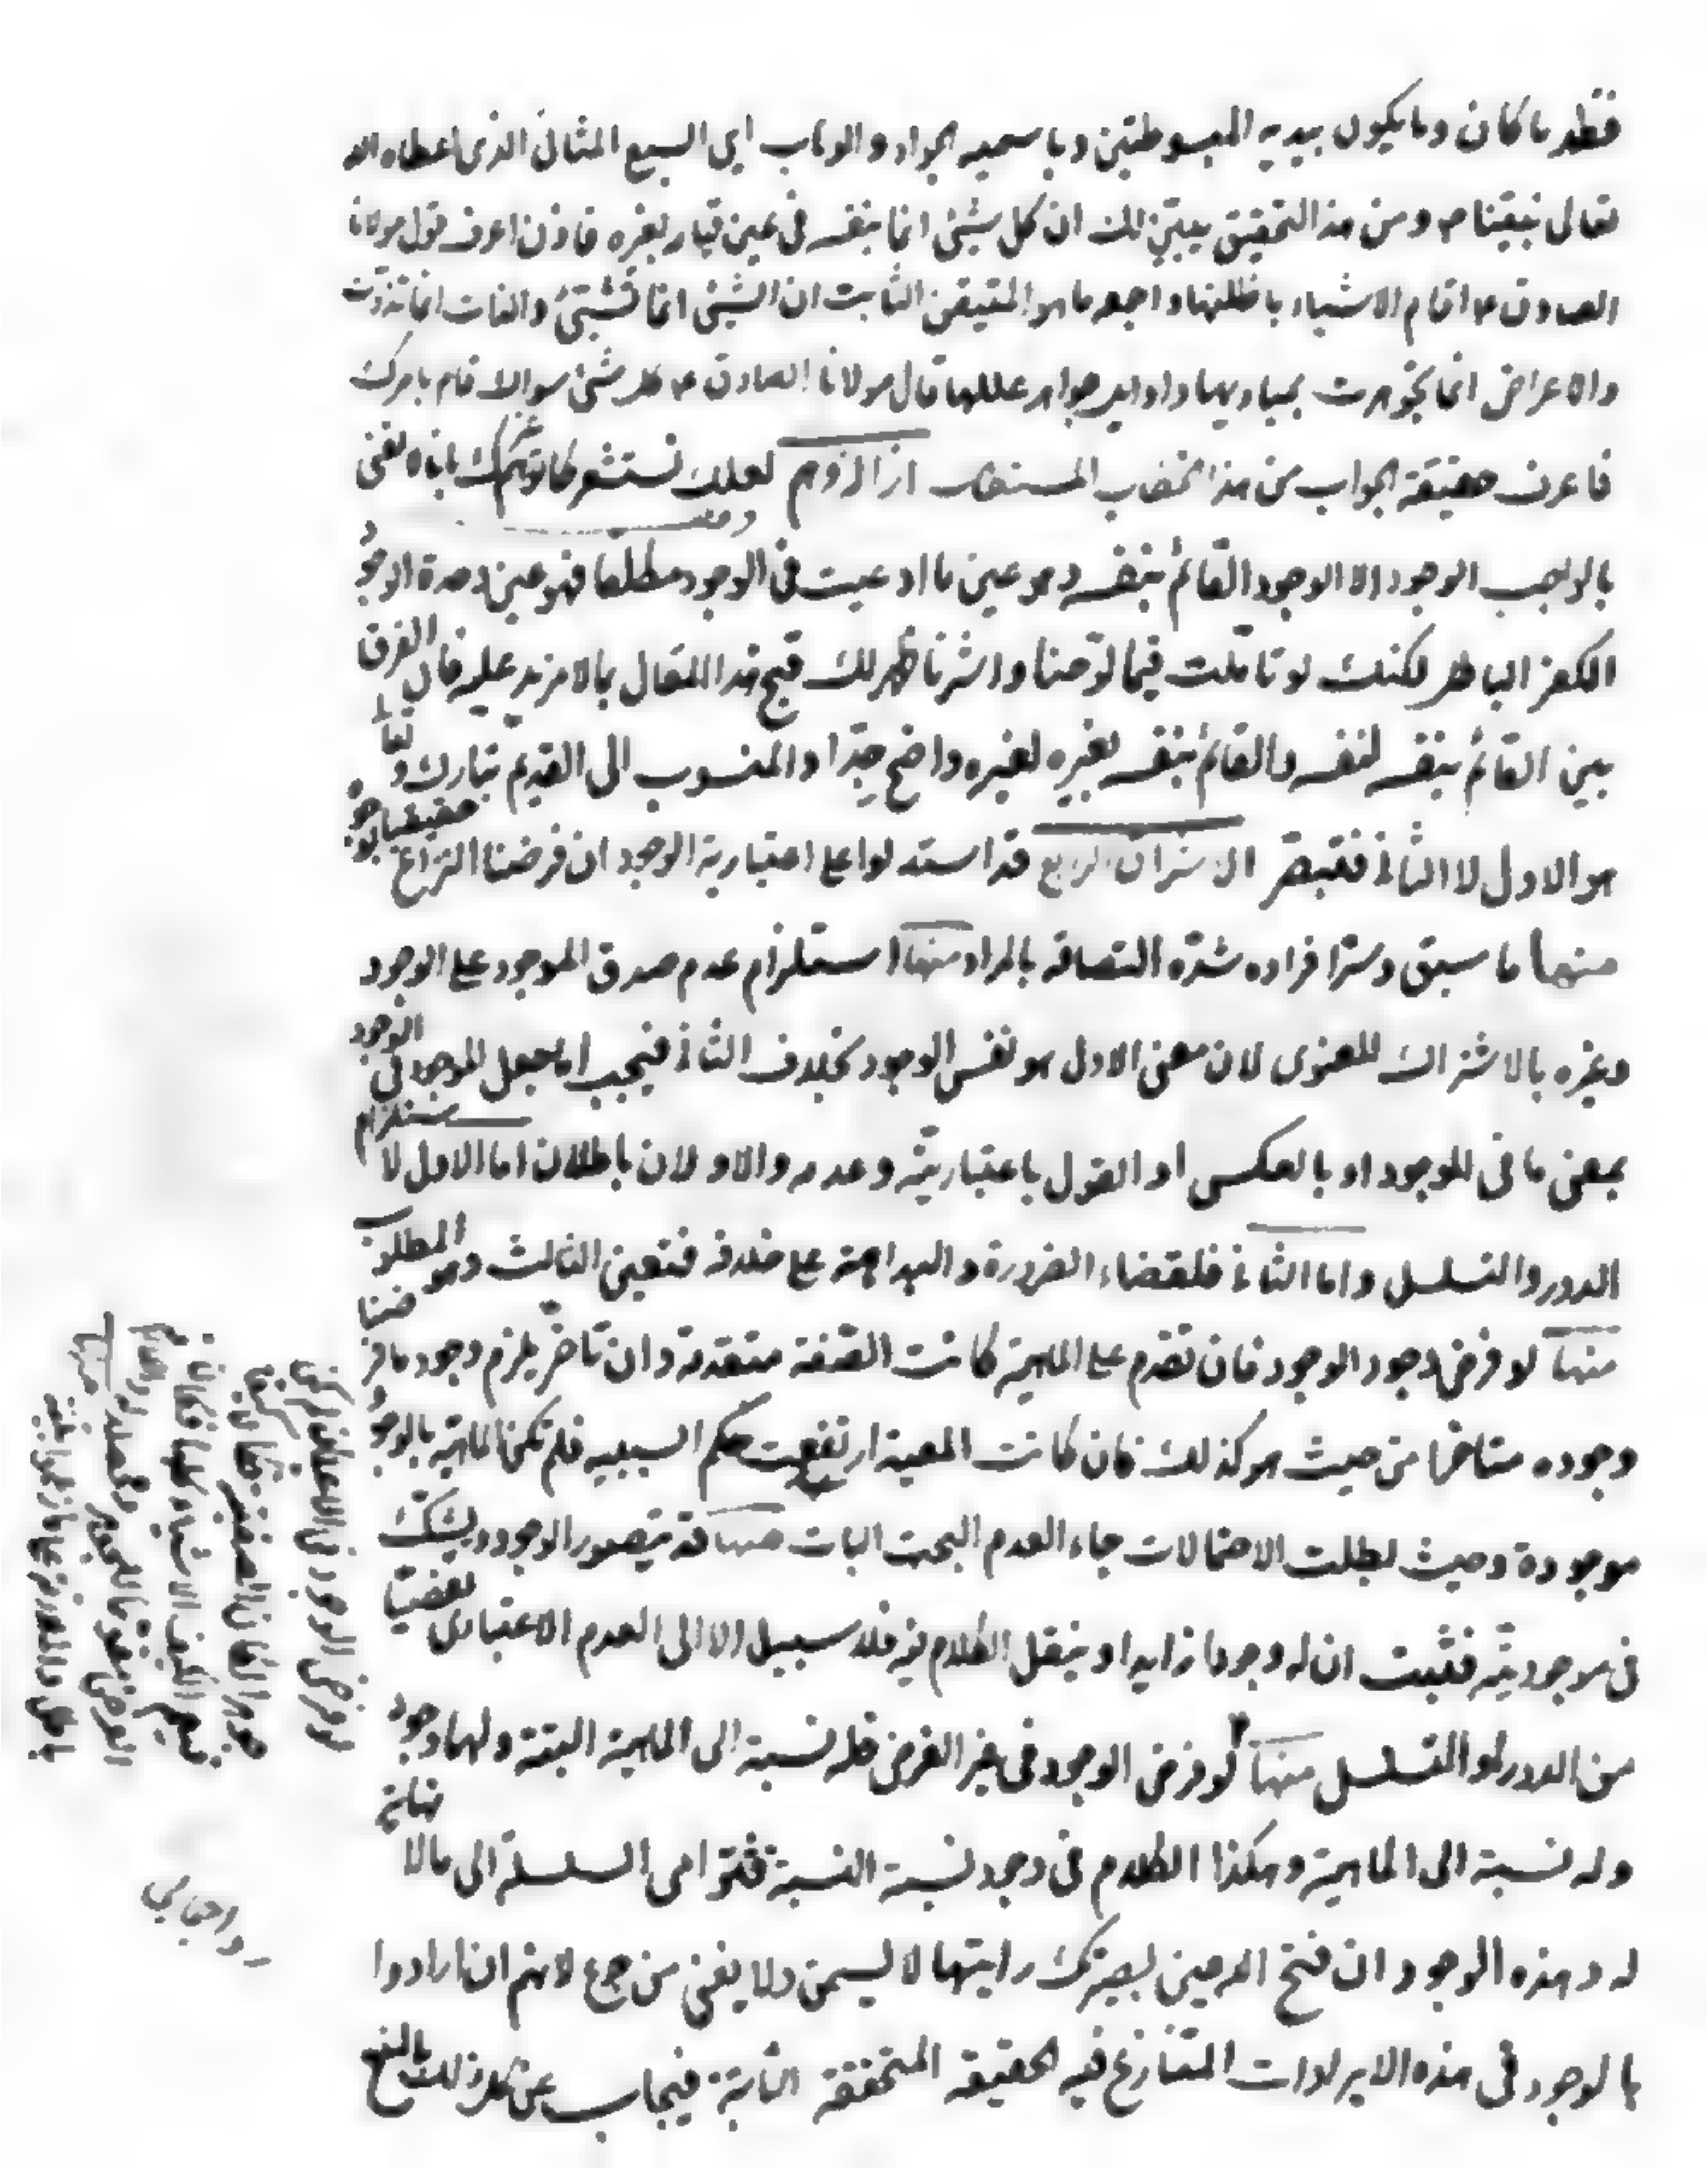 فقطر ما كان وما يكون بيديه المبسوطتين وباسميه الجواد والوهاب اي السبع المثاني الذى اعطاه الله
تعالى نبيّنا ص ومن هذا التحقيق يتبيّن لك ان كل شيئ انما بنفسه فى عين قيامه بغيره فاذن اعرف قول مولانا
الصادق ع اقام الاشياء باظلتها واجعد ما هو المتيقن الثابت ان الشيئ انما تشيّئ والذات انما تذوّت
والاعراض انما تجوهرت بمباديها واوايل جواهر عللها قال مولانا الصادق ع كل شيئ سواك قام بامرك
فاعرف حقيقة الجواب من هذا الخطاب المستطاب ازالة وهم لعلك تستشعر مما توهمك بانا لا نعنى
بالواجب الوجود الا الوجود القائم بنفسه وهو عين ما ادعيت فى الوجود مطلقا فهو عين وحدة الوجود
الكفر الباطل لكنك لو تاملت فيما لوّحنا واشرنا ظهر لك قبح هذا المقال بما لا مزيد عليه فان الفرق
بين القائم بنفسه لنفسه والقائم بنفسه بغيره لغيره واضح جدّا والمنسوب الى القديم تبارك وتعالى
هو الاول لا الثانى فتبصّر الاشراق الرابع قد استدلوا على اعتبارية الوجود ان فرضنا النزاع حقيقيا بوجوه
منها ما سبق وسرّ افراده شدّة التصاقه بالمراد منها استلزام عدم صدق الموجود على الوجود
وغيره بالاشتراك المعنوى لان معنى الاول هو نفس الوجود بخلاف الثانى فيجب اما جعل الموجود فى الوجود
بمعنى ما فى الموجود او بالعكس او القول باعتباريته وعدمه والاولان باطلان اما الاول لاستلزام
الدور والتسلسل واما الثانى فلقضاء الضرورة والبداهة على خلافه فتعين الثالث وهو المطلوب
منها لو فرض وجود الوجود فان تقدم على المهية كانت الصفة متقدمة وان تاخّر يلزم وجود ما فرضنا
وجوده متاخرا من حيث هو كذلك فان كانت المعية ارتفعت حكم السببيه فلم تكن الماهية بالوجود
موجودة وحيث بطلت الاحتمالات جاء العدم البحت البات منها قد يتصور الوجود ويشكّ
فى موجوديّته فثبت ان له وجودا زايدا وينقل الكلام فيه فلا سبيل الا الى العدم الاعتبارى تفصّيا
من الدور او التسلسل منها لو فرض الوجود فى غير الفرض فله نسبة الى المهية البتة ولها وجود
وله نسبة الى الماهية وهكذا الكلام فى وجود نسبة النسبة فتترامى السلسلة الى ما لا نهاية
له وهذه الوجوه ان فتح الله عين بصيرتك رايتها لا يسمن ولا يغنى من جوع لانهم ان ارادوا
بالوجود فى هذه الايرادات المتنازع فيه الحقيقة المتحققة الثابتة فيجاب عن كل ذلك بالمنع